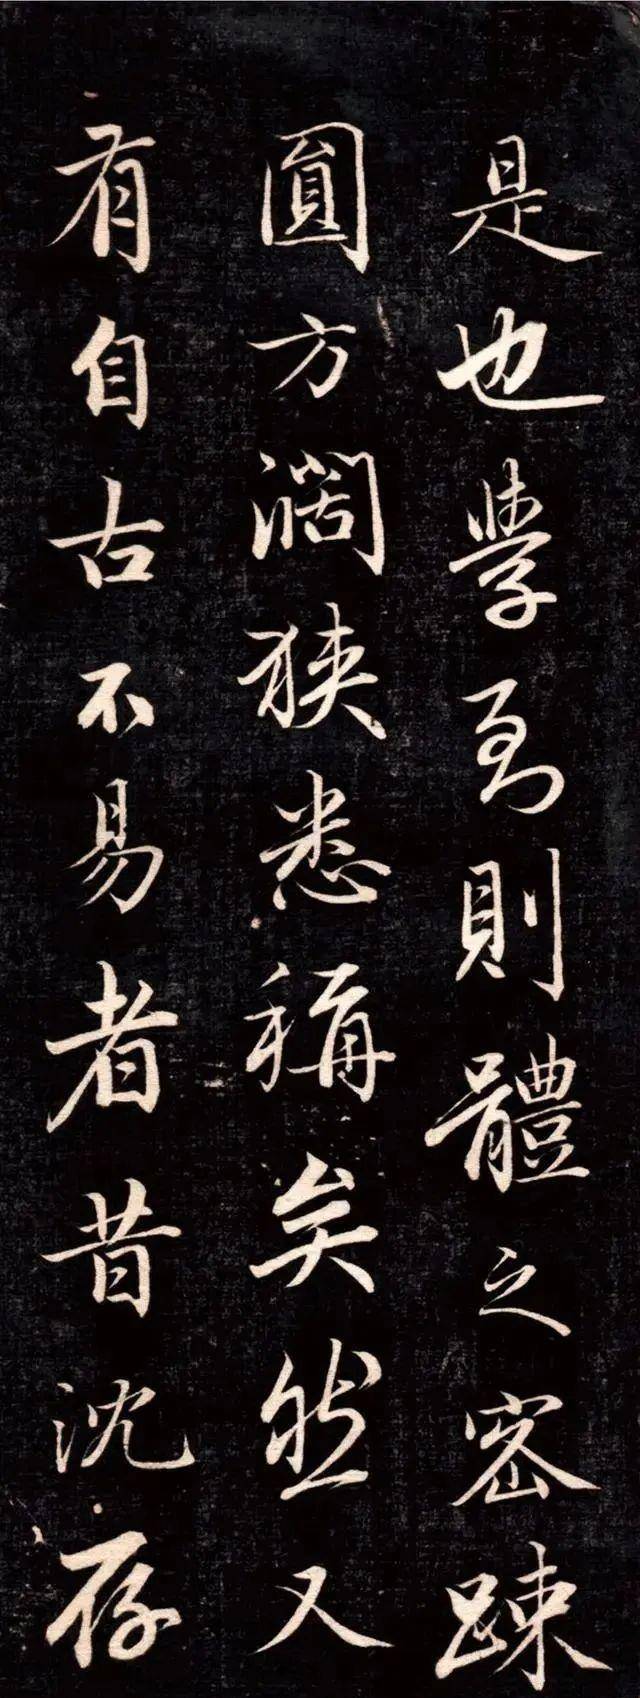 是也學至則體之密踈
圓方濶狹悉稱矣然又
有自古不易者昔沈存